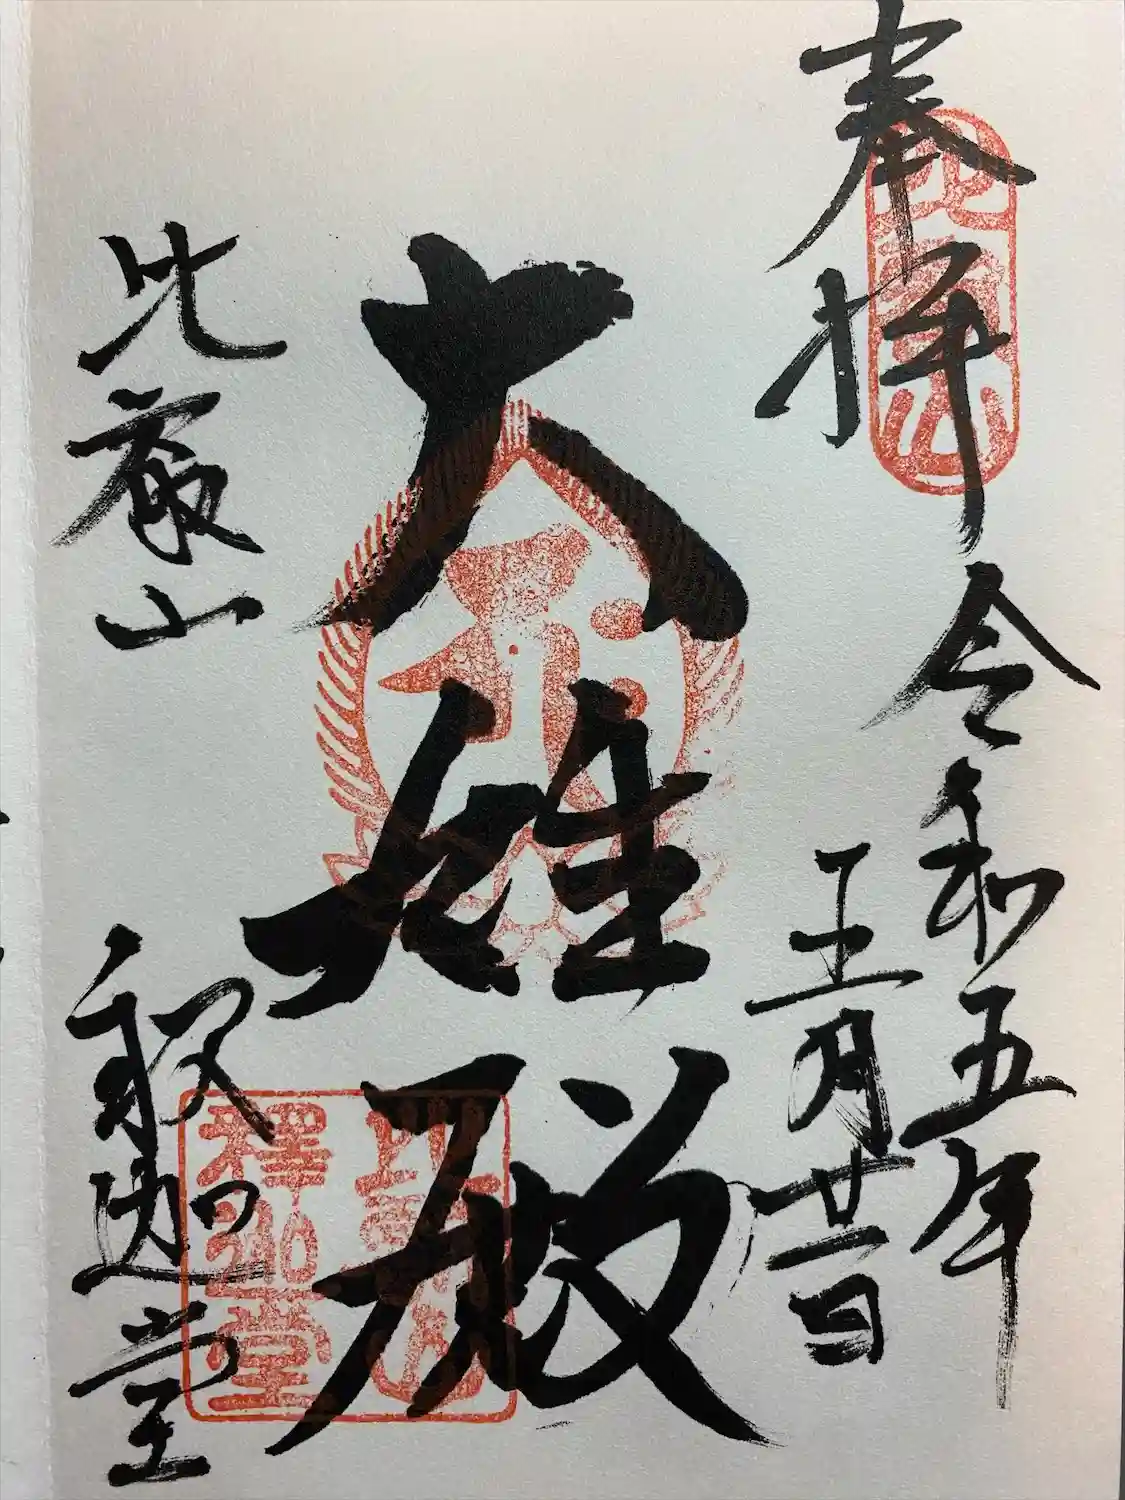 奉拝
令和五年
月廿一日
大雄殿
比叡山
釈迦堂
比叡山
比叡山
釋迦堂